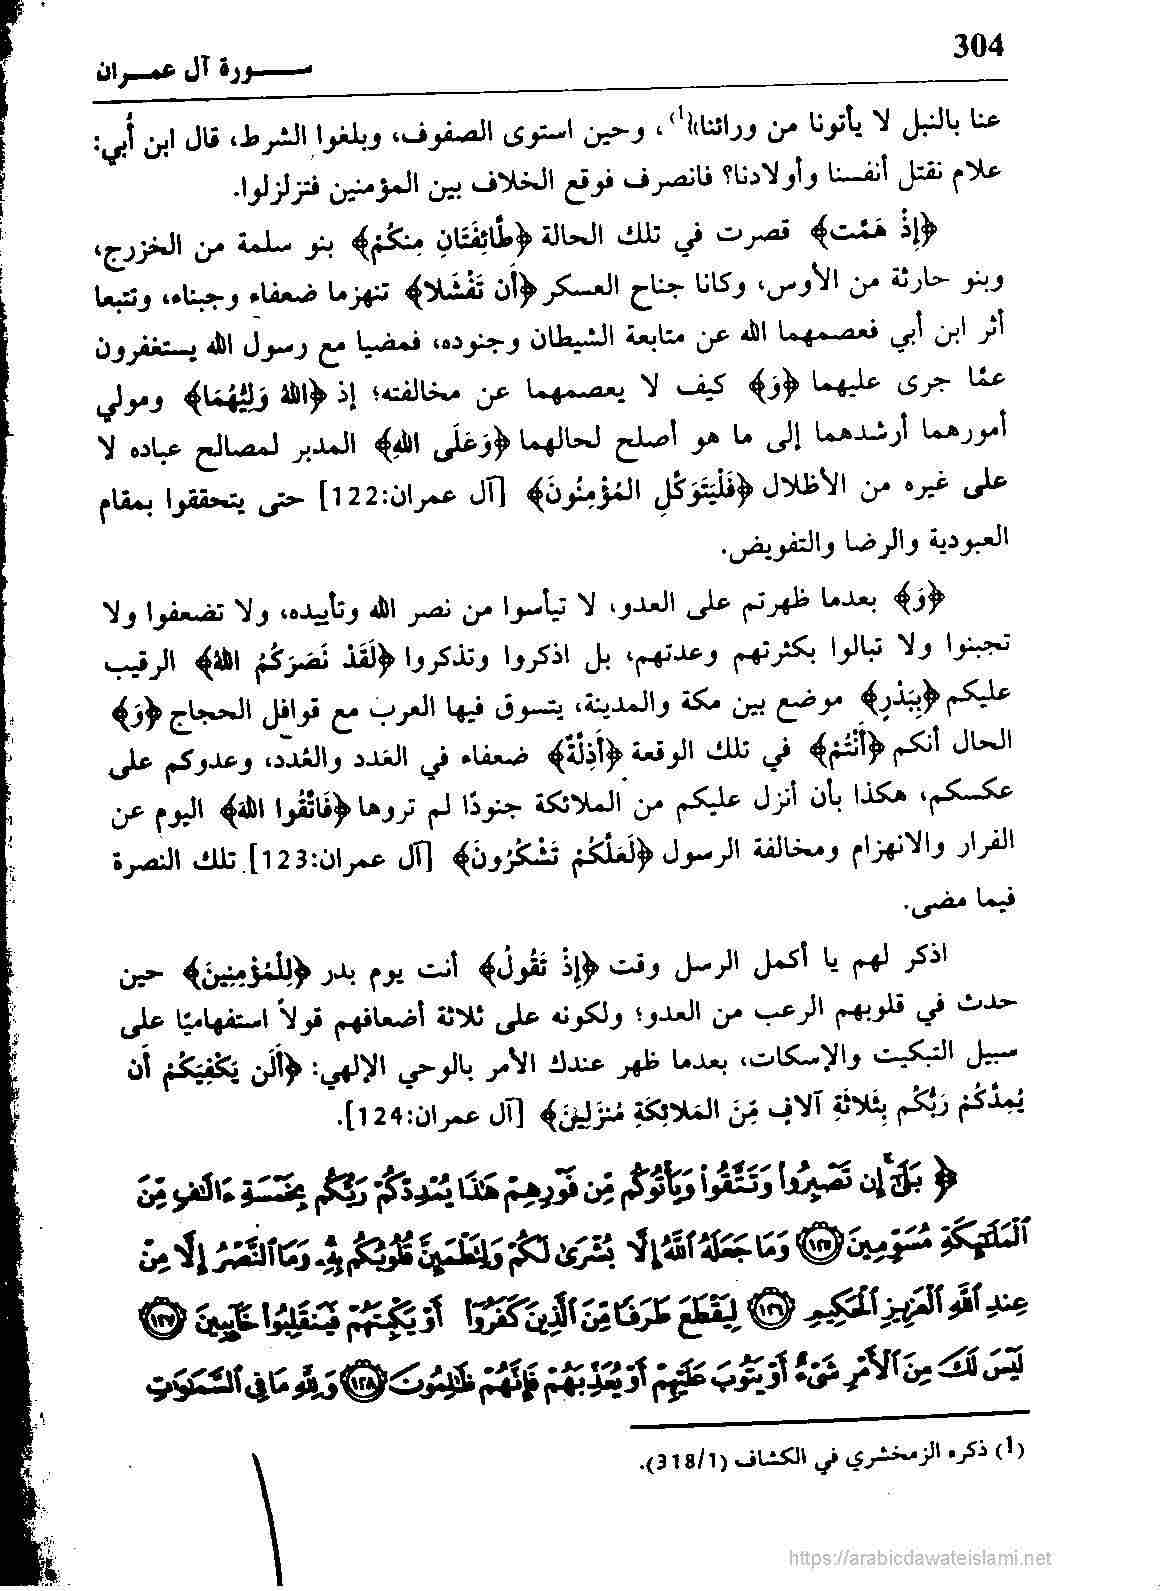 304
سـورة آل عمـران
عنا بالنبل لا يأتونا من ورائنا»(1)، وحين استوى الصفوف، وبلغوا الشرط، قال ابن أُبي:
علام نقتل أنفسنا وأولادنا؟ فانصرف فوقع الخلاف بين المؤمنين فتزلزلوا.
﴿إِذْ هَمَّت﴾ قصرت في تلك الحالة ﴿طَّائِفَتَانِ مِنكُمْ﴾ بنو سلمة من الخزرج،
وبنو حارثة من الأوس، وكانا جناح العسكر ﴿أَن تَفْشَلا﴾ تنهزما ضعفاء وجبناء، وتتبعا
أثر ابن أبي فعصمهما الله عن متابعة الشيطان وجنوده، فمضيا مع رسول الله يستغفرون
عمَّا جرى عليهما ﴿وَ﴾ كيف لا يعصمهما عن مخالفته؛ إذ ﴿اللهُ وَلِيُّهُمَا﴾ ومولي
أمورهما أرشدهما إلى ما هو أصلح لحالهما ﴿وَعَلَى اللهِ﴾ المدبر لمصالح عباده لا
على غيره من الأظلال ﴿فَلْيَتَوَكَّلِ المُؤْمِنُونَ﴾ [آل عمران:122] حتى يتحققوا بمقام
العبودية والرضا والتفويض.
﴿وَ﴾ بعدما ظهرتم على العدو، لا تيأسوا من نصر الله وتأييده، ولا تضعفوا ولا
تجبنوا ولا تبالوا بكثرتهم وعدتهم، بل اذكروا وتذكروا ﴿لَقَدْ نَصَرَكُمُ اللهُ﴾ الرقيب
عليكم ﴿بِبَدْرٍ﴾ موضع بين مكة والمدينة، يتسوق فيها العرب مع قوافل الحجاج ﴿وَ﴾
الحال أنكم ﴿أَنْتُمْ﴾ في تلك الوقعة ﴿أَذِلَّةٌ﴾ ضعفاء في العَدد والعُدد، وعدوكم على
عكسكم، هكذا بأن أنزل عليكم من الملائكة جنودًا لم تروها ﴿فَاتَّقُوا اللهَ﴾ اليوم عن
الفرار والانهزام ومخالفة الرسول ﴿لَعَلَّكُمْ تَشْكُرُونَ﴾ [آل عمران:123] تلك النصرة
فيما مضى.
اذكر لهم يا أكمل الرسل وقت ﴿إِذْ تَقُولُ﴾ أنت يوم بدر ﴿لِلْمُؤْمِنِينَ﴾ حين
حدث في قلوبهم الرعب من العدو؛ ولكونه على ثلاثة أضعافهم قولاً استفهاميًا على
سبيل التبكيت والإسكات، بعدما ظهر عندك الأمر بالوحي الإلهي: ﴿أَلَن يَكْفِيَكُمْ أَن
يُمِدَّكُمْ رَبُّكُم بِثَلاثَةِ آلافٍ مِّنَ المَلائِكَةِ مُنزَلِينَ﴾ [آل عمران:124].
﴿ بَلَىٰٓ إِن تَصْبِرُوا۟ وَتَتَّقُوا۟ وَيَأْتُوكُم مِّن فَوْرِهِمْ هَٰذَا يُمْدِدْكُمْ رَبُّكُم بِخَمْسَةِ ءَالَٰفٍ مِّنَ
ٱلْمَلَٰٓئِكَةِ مُسَوِّمِينَ ١٢٥ وَمَا جَعَلَهُ ٱللَّهُ إِلَّا بُشْرَىٰ لَكُمْ وَلِتَطْمَئِنَّ قُلُوبُكُم بِهِۦ وَمَا ٱلنَّصْرُ إِلَّا مِنْ
عِندِ ٱللَّهِ ٱلْعَزِيزِ ٱلْحَكِيمِ ١٢٦ لِيَقْطَعَ طَرَفًا مِّنَ ٱلَّذِينَ كَفَرُوٓا۟ أَوْ يَكْبِتَهُمْ فَيَنقَلِبُوا۟ خَآئِبِينَ ١٢٧
لَيْسَ لَكَ مِنَ ٱلْأَمْرِ شَىْءٌ أَوْ يَتُوبَ عَلَيْهِمْ أَوْ يُعَذِّبَهُمْ فَإِنَّهُمْ ظَٰلِمُونَ ١٢٨ وَلِلَّهِ مَا فِى ٱلسَّمَٰوَٰتِ
(1) ذكره الزمخشري في الكشاف (318/1).
https://arabicdawateislami.net